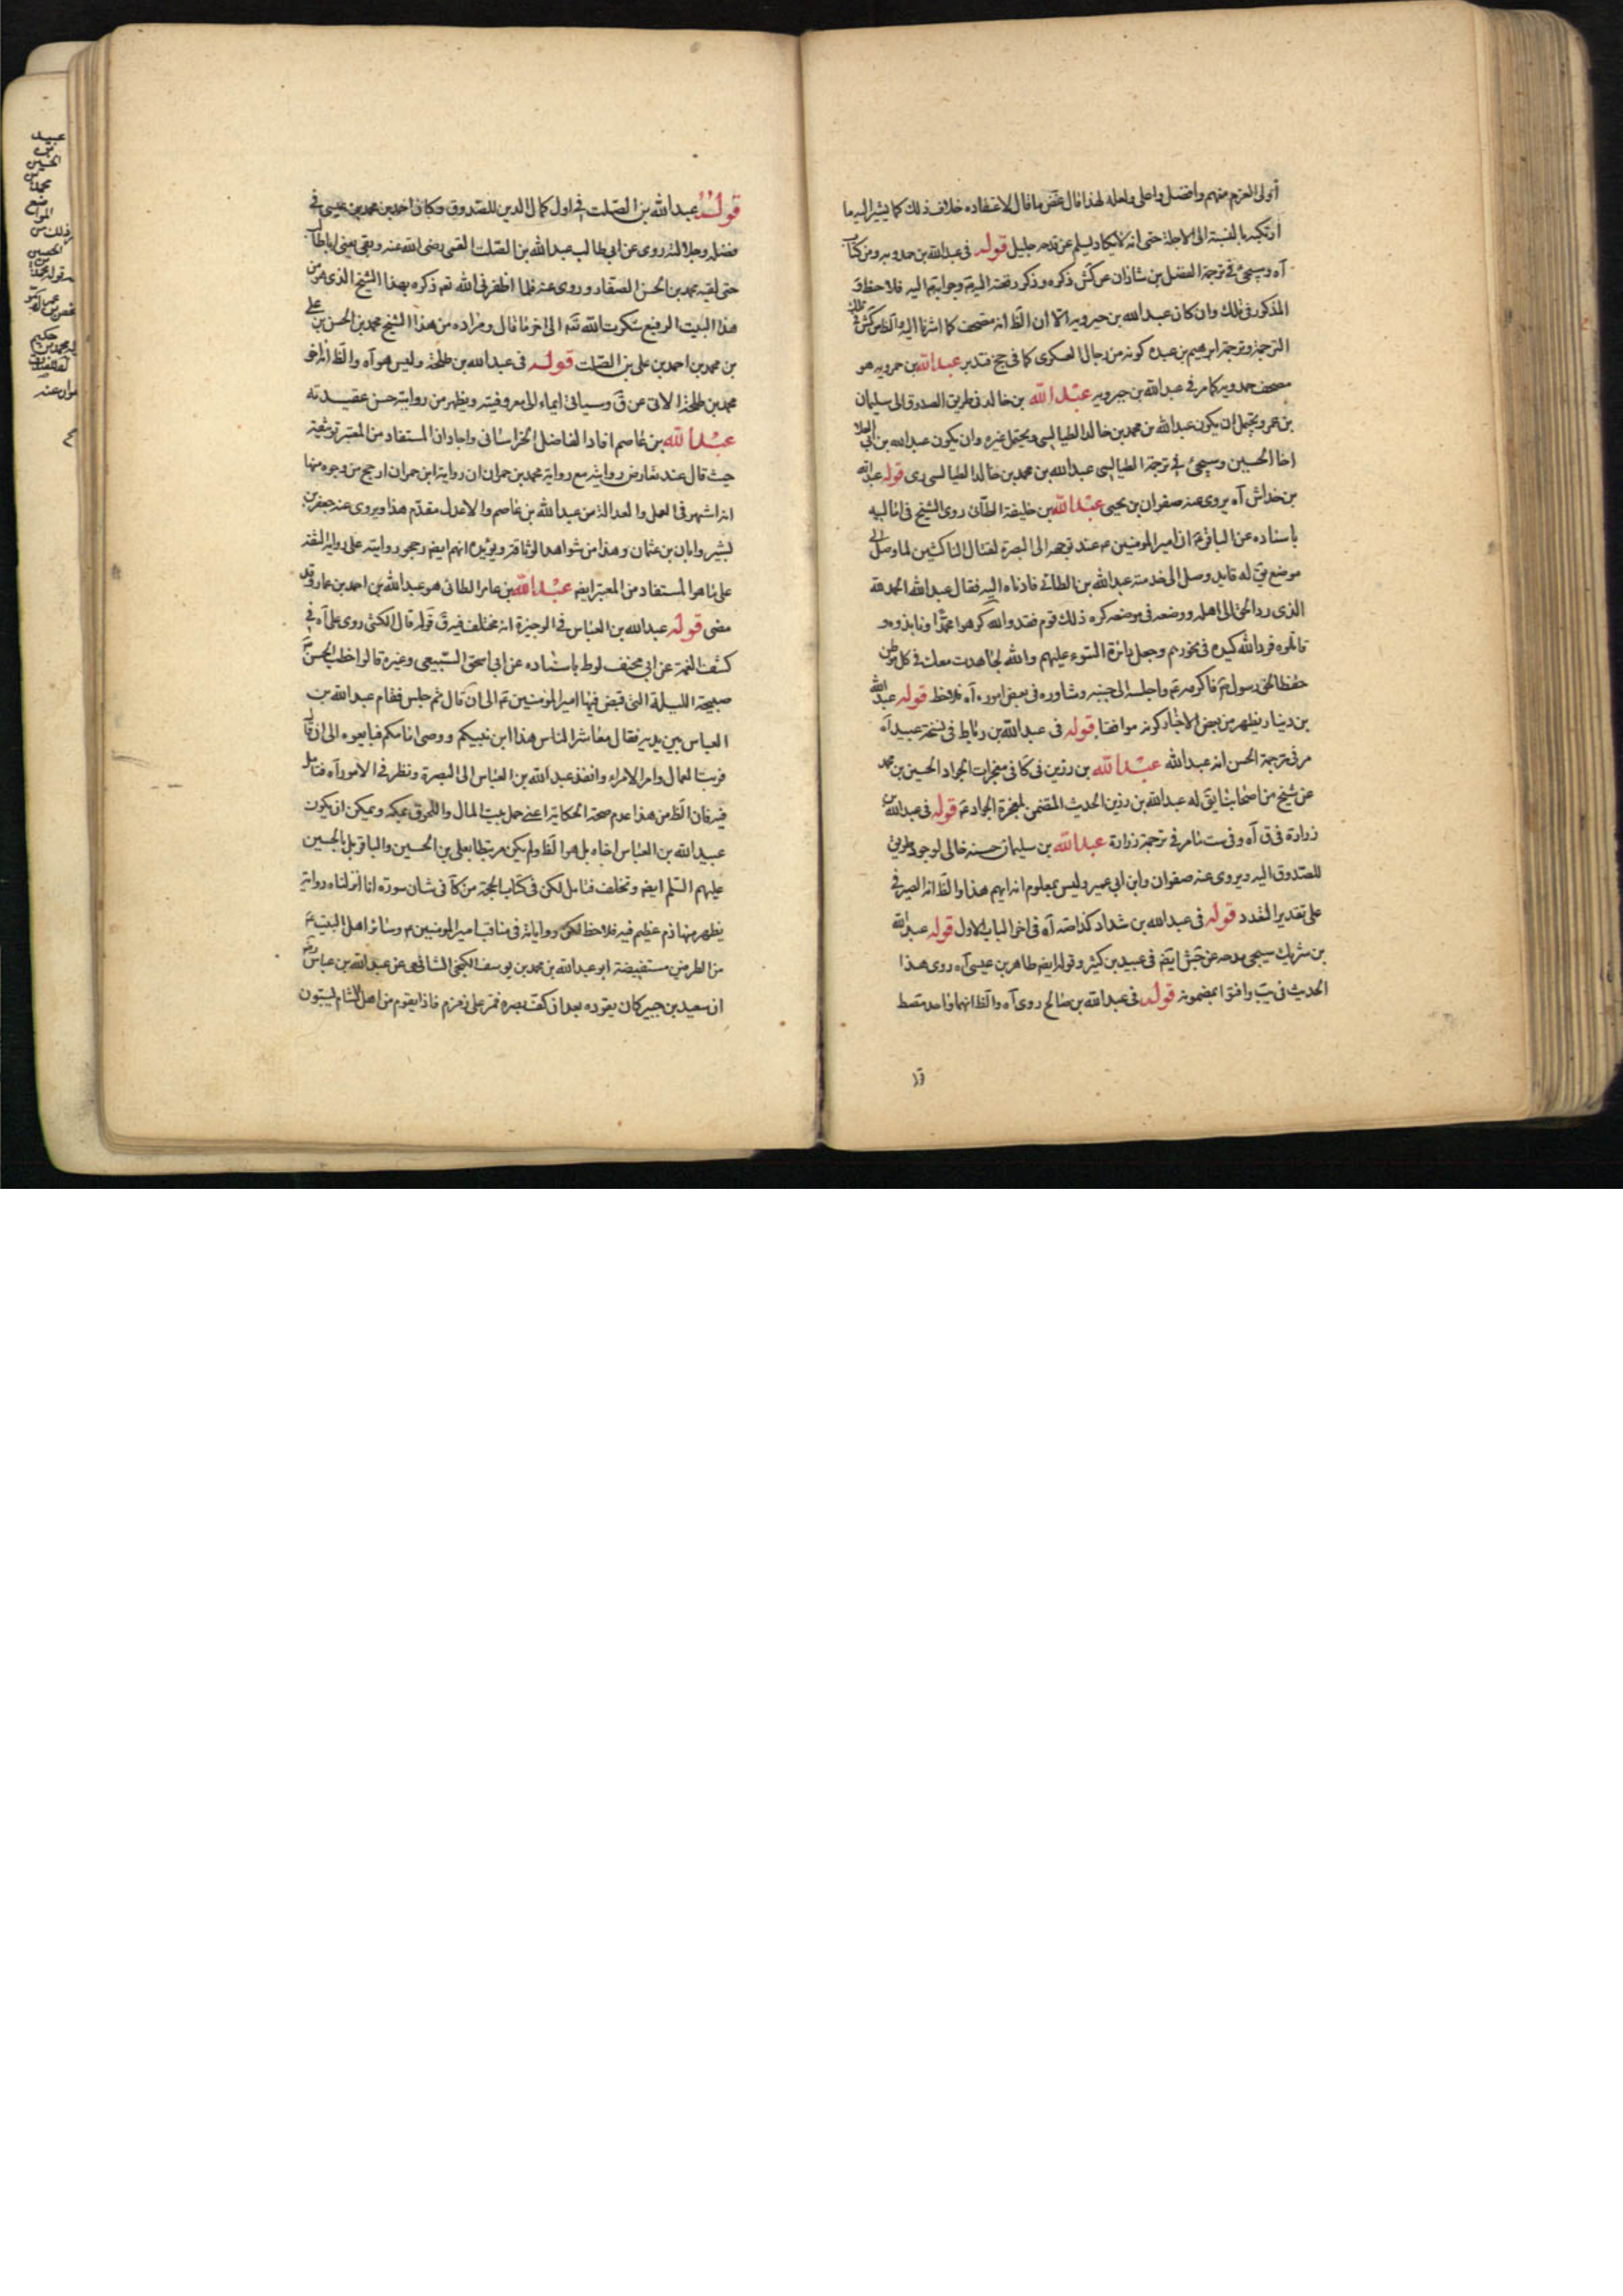 أولى العزم منهم وافضل واعلى ولعله لهذا قال غض ما قال لاعتقاده خلاف ذلك كما يشير اليه ما
ارتكبه بالنسبة الى الاجلة حتى انه لا يكاد يسلم عن قدحه جليل قوله في عبدالله بن حمدويه ومن كتاب
آه وسيجئ في ترجمة الفضل بن شاذان عن كش ذكره وذكر رقعته اليه فلاحظ
المذكور في ذلك وان كان عبدالله بن حمدويه الا ان الظ انه مصحف كما اشرنا اليه
الترجمة وترجمة ابرهيم بن عبده كونه من رجال العسكرى كما في جخ فتدبر عبدالله بن حمدويه هو
مصحف حمدويه كما مر في عبدالله بن عبدالله بن خالد في طريق الصدوق الى سليمان
بن عمر ويحتمل ان يكون عبدالله بن محمد بن خالد الطيالسى ويحتمل غيره وان يكون عبدالله بن ابى العلا
اخا الحسين وسيجئ في ترجمة الطيالسى عبدالله بن محمد بن خالد الطيالسى قوله عبدالله
بن خداش آه يروى عنه صفوان بن يحيى عبدالله بن خليفة الطائى روى الشيخ في اماليه
باسناده عن الباقر ع ان امير المومنين ع عند توجهه الى البصرة لقتال الناكثين لما وصل الى
موضع يق له قايد وصل الى خدمته عبدالله بن الطائى فادناه اليه فقال عبدالله الحمد لله
الذى رد الحق الى اهله ووضعه في موضعه كره ذلك قوم فقد والله كرهوا محمدا ونابذوه و
قاتلوه فرد الله كيده في نحورهم وجعل دائرة السوء عليهم والله لجاهدت معك في كل موطن
حفظا لحق رسول ص فاكرمه ع واجلسه الى جنبه وشاوره في بعض اموره آه فلاحظ قوله عبدالله
بن دينار يظهر من بعض الاخبار كونه موافقا قوله في عبدالله بن رباط في نسخة عبيد آه
مر في ترجمة الحسن انه عبدالله عبدالله بن رزين في كا في معجزات الجواد الحسين بن محمد
عن شيخ من اصحابنا يق له عبدالله بن رزين الحديث المتضمن لمعجزة الجواد ع قوله في عبدالله بن
زرارة في ق آه وفي ست مامر في ترجمة زرارة عبدالله بن سليمان حسنه خالى لوجود طريق
للصدوق اليه ويروى عنه صفوان وابن ابى عمير وليس بمعلوم انه ايهم هذا والظ انه الصيرفي
على تقدير التعدد قوله في عبدالله بن شداد كذا صه آه في اخر الباب الاول قوله عبدالله
بن شريك سيجى مدحه عن جش ايضا في عبيد بن كثير وقوله ايضا طاهر بن عيسى آه روى هذا
الحديث في يب وافتى بمضمونه قوله في عبدالله بن صالح روى آه والظ انهما واحد
قوله عبدالله بن الصلت في اول كمال الدين للصدوق وكان احمد بن محمد بن عيسى في
فضله وجلالته روى عن ابى طالب عبدالله بن الصلت القمى رضى الله عنه وبقى يعنى ابا طالب
حتى لقيه محمد بن الحسن الصفار وروى عنه فلما اظفرنى الله تع ذكره بهذا الشيخ الذى هو من
هذا البيت الرفيع شكرت الله الى اخر ما قال ومراده من هذا الشيخ محمد بن الحسن بن على
بن محمد بن احمد بن على بن الصلت قوله في عبدالله بن طلحة وليس هو آه والظ انه اخو
محمد بن طلحة الاتى عن ق وسيأتى ايماء الى معروفيته ويظهر من روايته حسن عقيدته
عبدالله بن عاصم افاد الفاضل الخراسانى واجاد ان المستفاد من المعتبر توثيقه
حيث قال عند تعارض روايته مع رواية محمد بن حمران ان رواية ابن حمران ارجح من وجوه منها
انه اشهر في العمل والعدالة من عبدالله بن عاصم والاعدل مقدم هذا ويروى عنه جعفر بن
بشير وابان بن عثمان وهذا من شواهد الوثاقة ويؤيده انهم ايضا رجحوا روايته على رواية الثقة
على ما هو المستفاد من المعتبر ايضا عبدالله بن عامر الطائى هو عبدالله بن احمد بن عامر وقد
مضى قوله عبدالله بن العباس في الوجيزة انه مختلف فيه ق قوله قال الكشى روى على آه في
كشف الغمة عن ابى مخنف لوط باسناده عن ابى اسحق السبيعى وغيره قالوا خطب الحسن ع
صبيحة الليلة التى قبض فيها امير المومنين ع الى ان قال ثم جلس فقام عبدالله بن
العباس بين يديه فقال معاشر الناس هذا ابن نبيكم ووصى امامكم فبايعوه الى ان قال
فرتب العمال وامر الامراء وانفذ عبدالله بن العباس الى البصرة ونظر في الامور آه فتامل
فيه فان الظ من هذا عدم صحة الحكاية اعنى حمل بيت المال واللحوق بمكة ويمكن ان يكون
عبيدالله بن العباس اخاه بل هو الظ ولم يكن مرتبطا بعلى بن الحسين والباقر بل بالحسين
عليهم السلم ايضا وتخلف فتامل لكن في كتاب الحجة من كا في شان سورة انا انزلناه رواية
يظهر منها ذم عظيم فيه فلاحظ لكن رواياته في مناقب امير المومنين ع وسائر اهل البيت ع
من الطرفين مستفيضة ابو عبدالله بن محمد بن يوسف الكنجى الشافعى عن عبدالله بن عباس
ان سعيد بن جبير كان يقوده بعد ان كف بصره فمر على زمزم فاذا بقوم من اهل الشام يسبون
عبيد
بن
الحسين
محمد
الحسين
حكيم